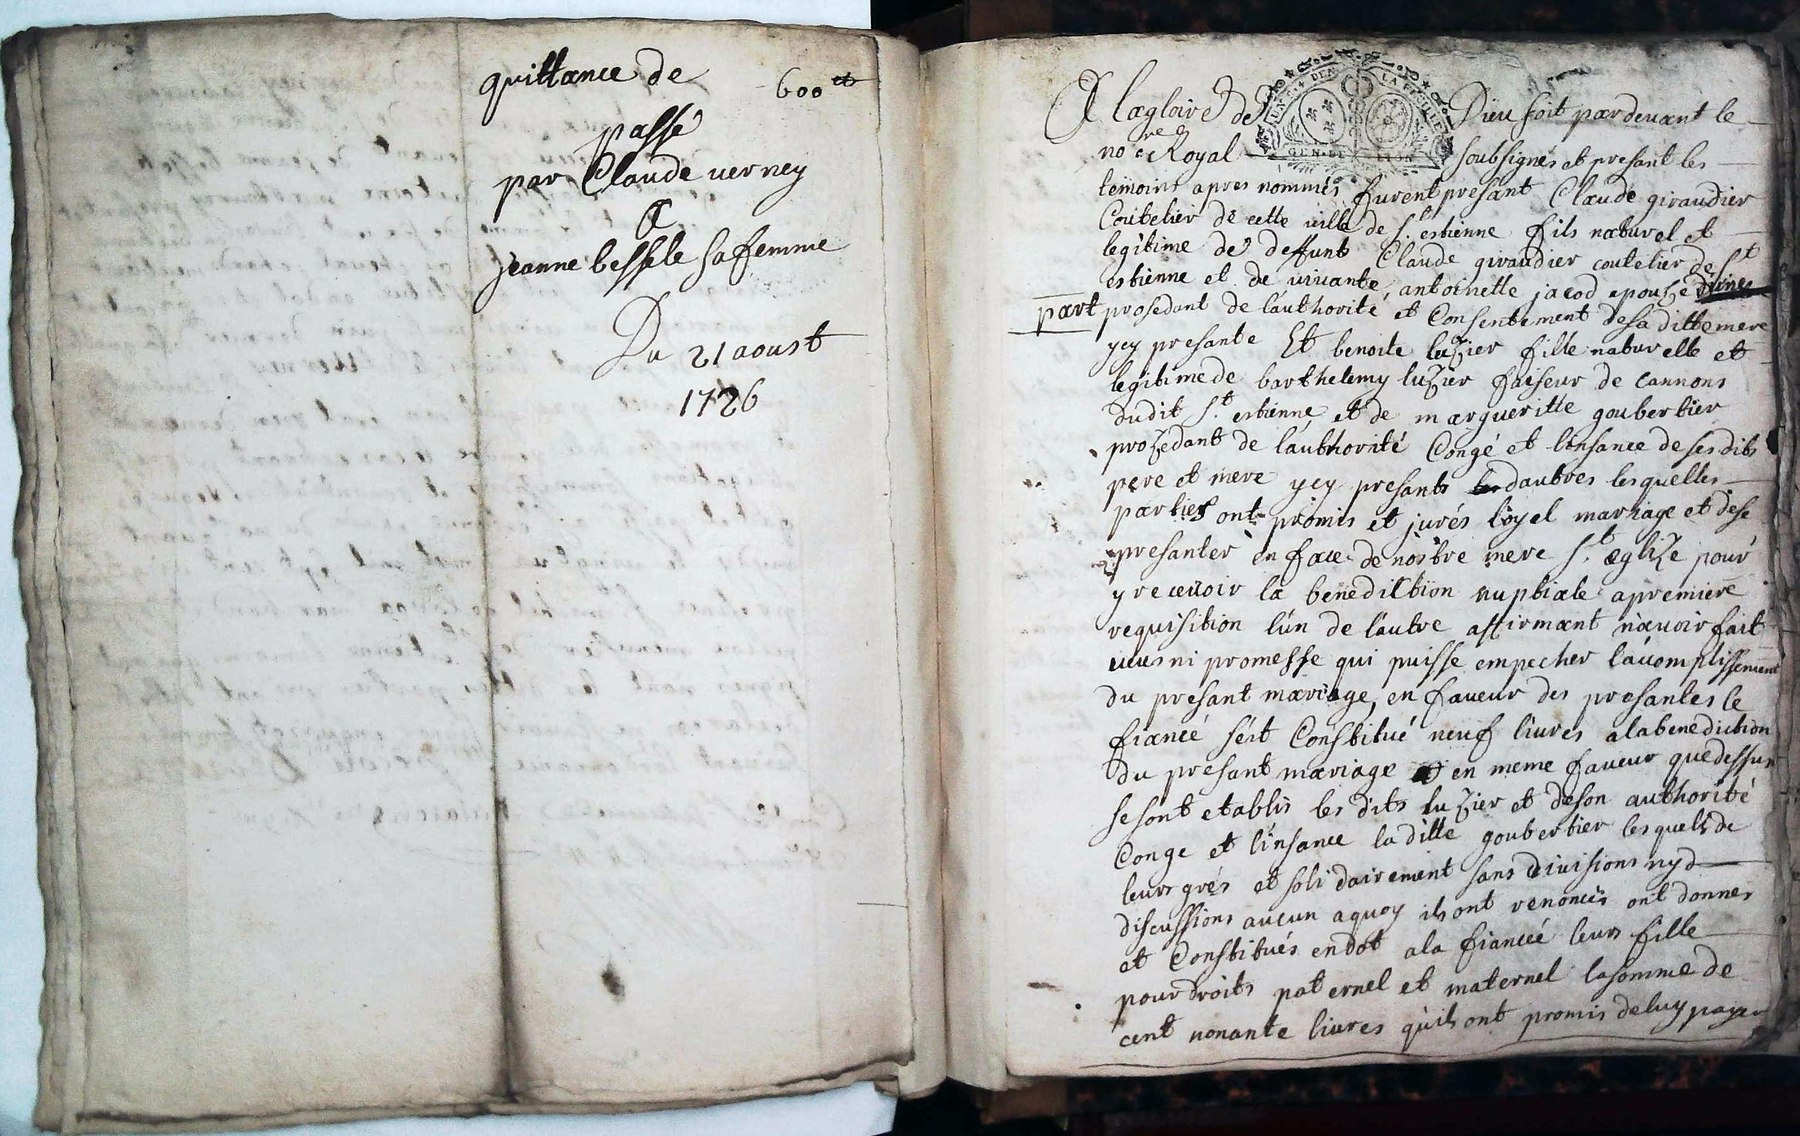 quittance de 600 tt
passé
par Claude verney
a
jeanne bessele sa femme
Du 21 aoust
1726
A la gloire de Dieu soit pardevant le
no.re Royal soubsignés et presant les
temoins apres nommés furent presant Claude giraudier
Coutelier de cette ville de S.t estienne fils naturel et
legitime de deffunt Claude giraudier coutelier de S.t
estienne et de vivante, antoinette jacod epouze
part prosedant de l'authorité et Consentement de sa ditte mere
ycy presante Et benoite luzier fille naturelle et
legitime de barthelemy luzier faiseur de cannons
dudit S.t estienne et de margueritte goubertier
prozedant de l'authorité Congé et linsance de ses dits
pere et mere ycy presants dautres lesquelles
parties ont promis et jurés loyel mariage et de se
presanter en face de nostre mere S.t eglize pour
y recevoir la benediction nuptiale a premiere
requisition lun de lautre affirmant n'avoir fait
veus ni promesse qui puisse empecher lacomplissement
du presant mariage, en faveur des presantes le
fiancé s'est Constitué neuf livres a la benediction
du presant mariage et en meme faveur que dessus
se sont etablis les dits luzier et de son authorité
Conge et linsance la ditte goubertier lesquels de
leurs grés et solidairement sans divisions ny d
discussions aucun a quoy ils ont renoncés ont donnes
et Constitués en dot a la fianceé leur fille
pour droits paternel et maternel la somme de
cent nonante livres quils ont promis de luy payer